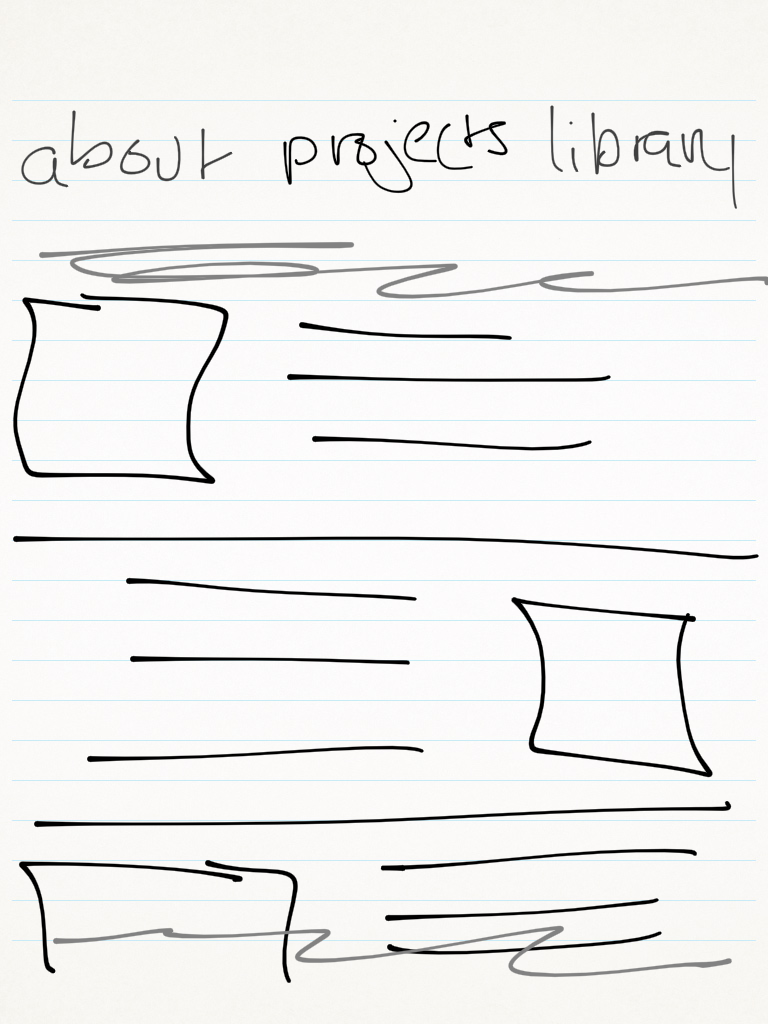 about projects library